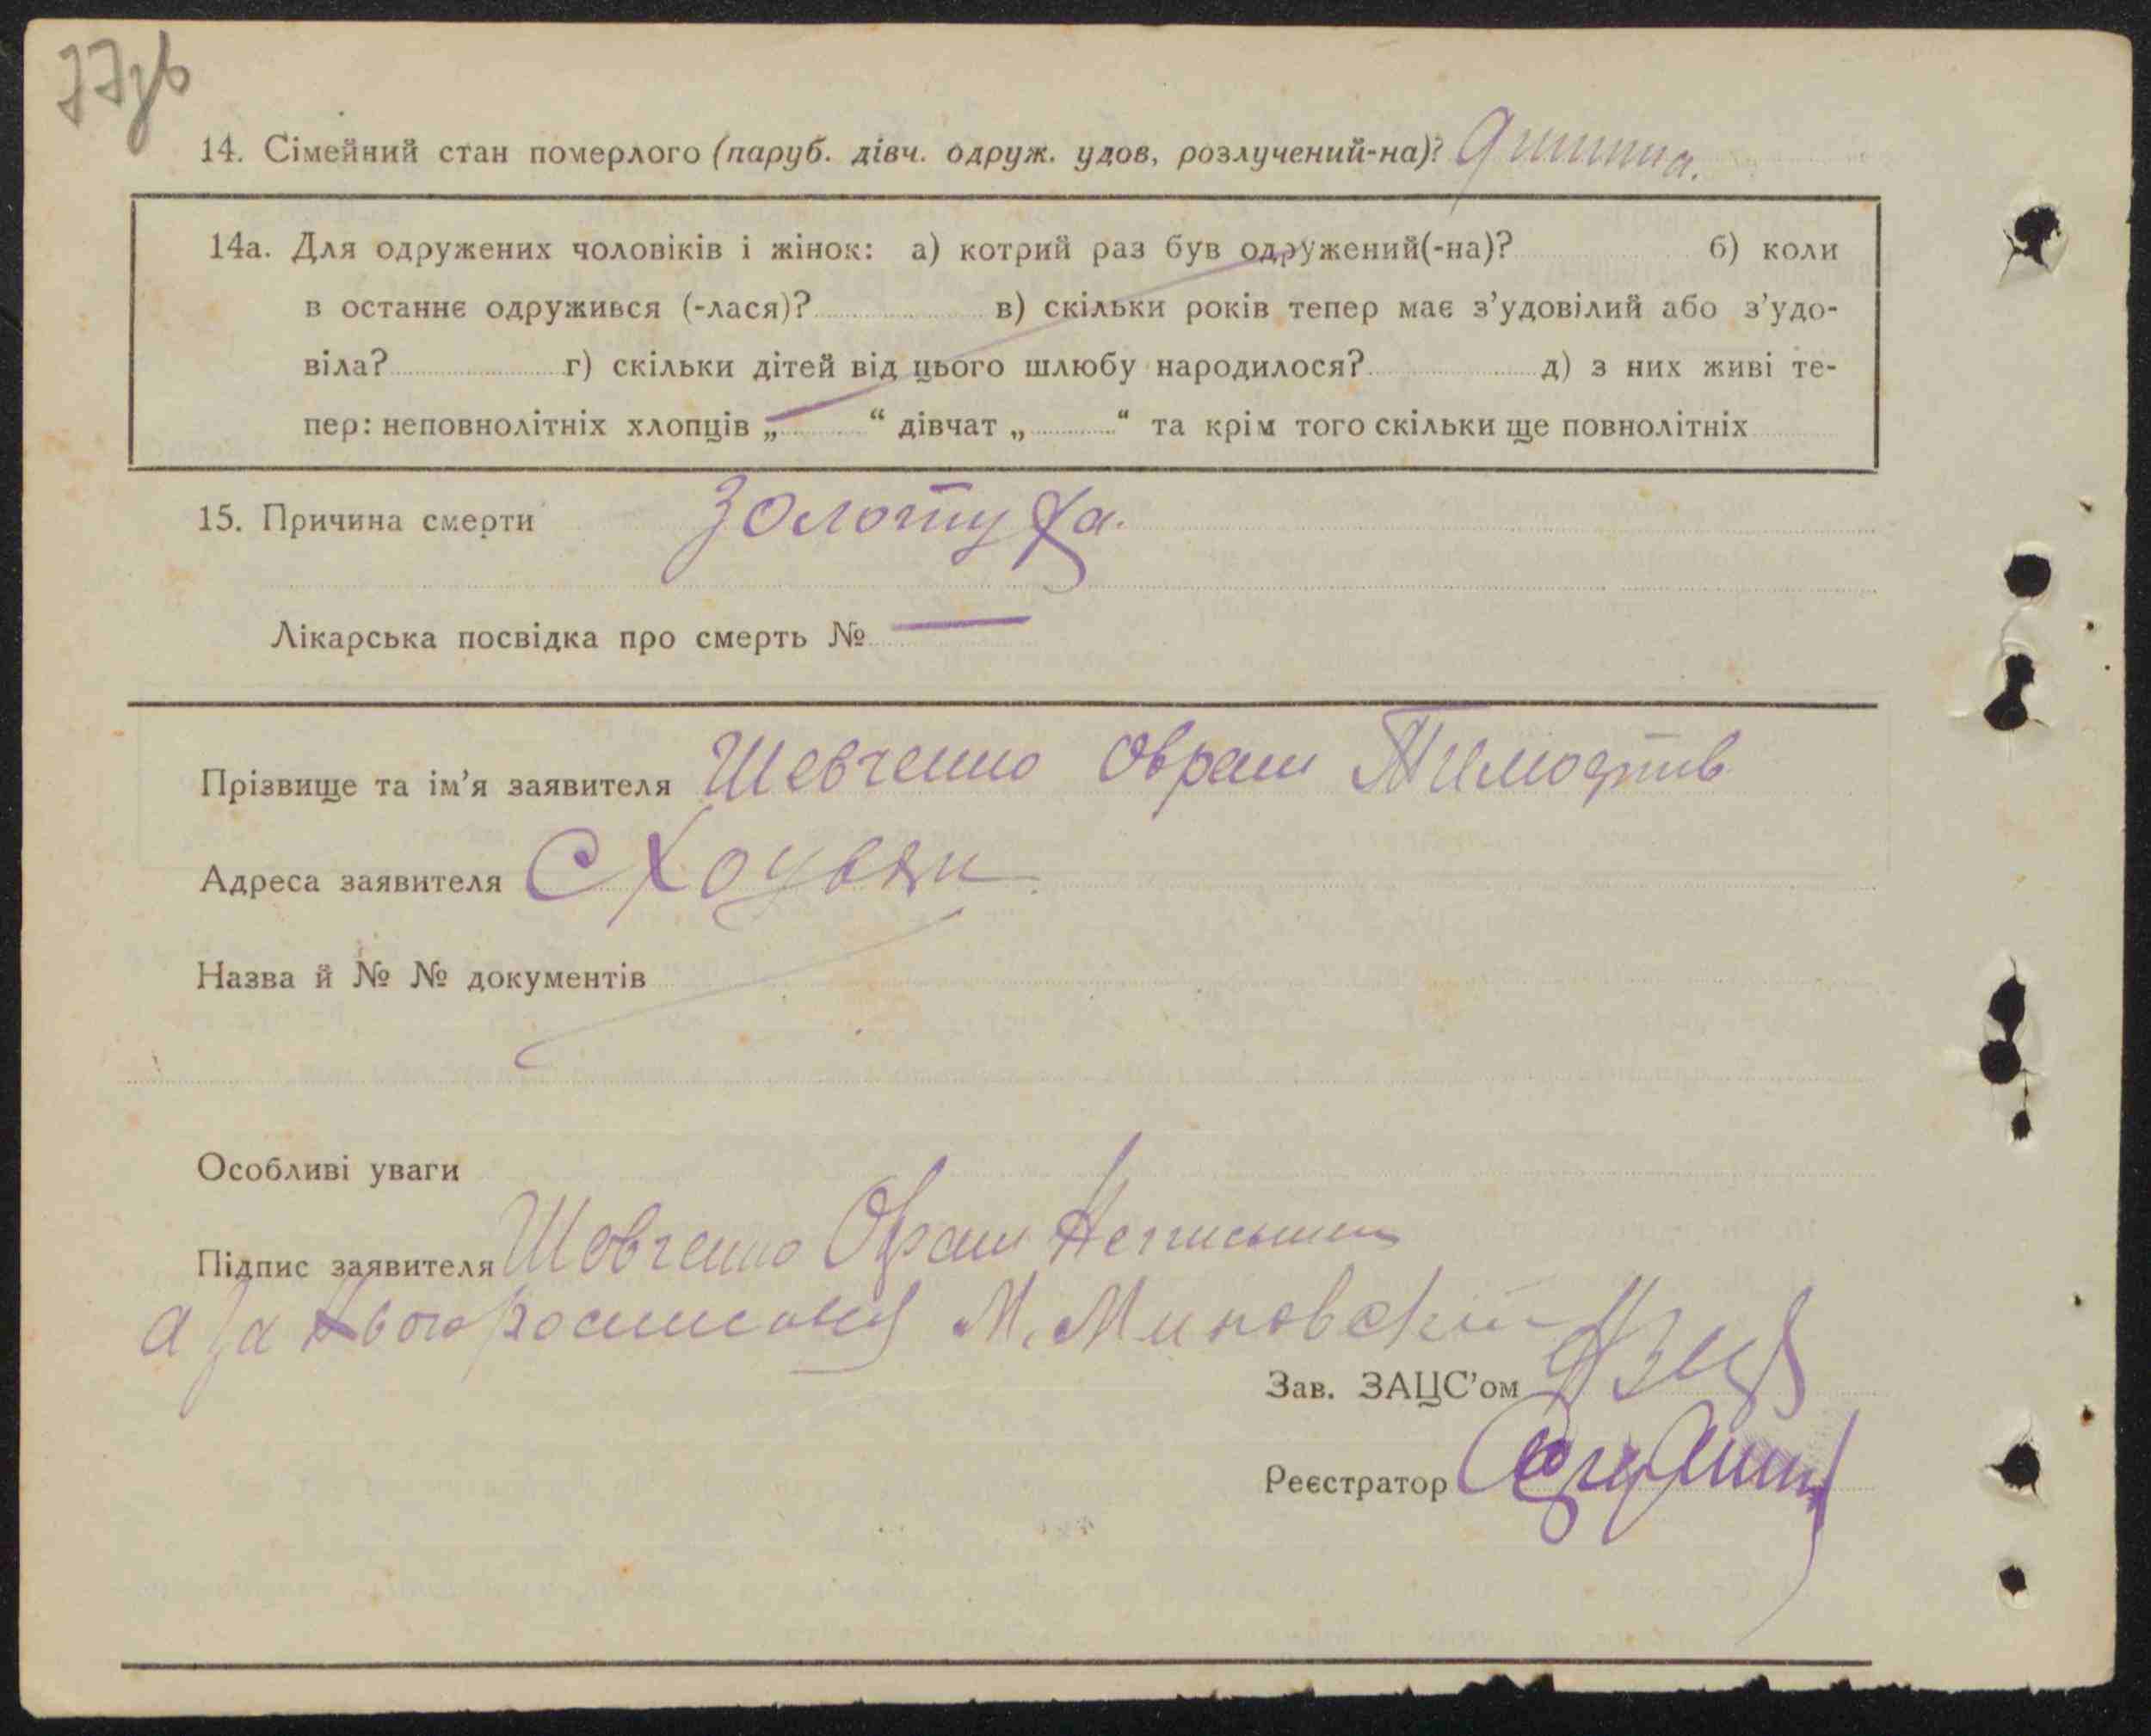 77зв
14. Сімейний стан померлого (паруб. дівч. одруж. удов, розлучений-на)? Дитина.
14а. Для одружених чоловіків і жінок: а) котрий раз був одружений(-на)? б) коли
в останнє одружився (-лася)? в) скільки років тепер має з’удовілий або з’удо-
віла? г) скільки дітей від цього шлюбу народилося? д) з них живі те-
пер: неповнолітніх хлопців „ “ дівчат „ “ та крім того скільки ще повнолітніх
15. Причина смерти Золотуха.
Лікарська посвідка про смерть № —
Прізвище та ім’я заявителя Шевченко Оврам
Адреса заявителя С
Назва й № № документів
Особливі уваги
Підпис заявителя Шевченко Оврам
а за М.
Зав. ЗАЦС’ом
Реєстратор